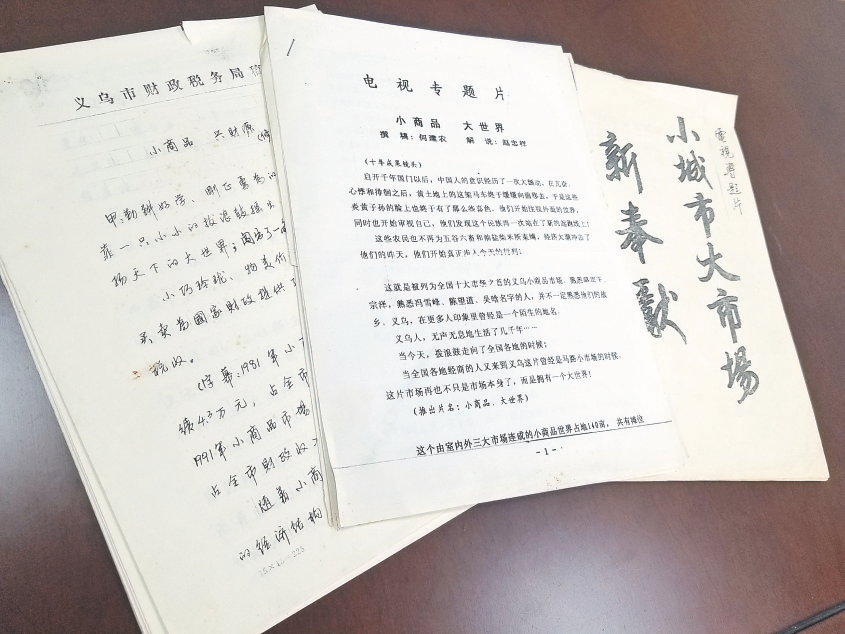 义乌市财政税务局
小商品 兴财源
靠一只小小的拨浪鼓摇
扬天下的大世界
小巧玲珑、物美价
买卖为国家财政提供
税收。
(字幕:1981年小
缴4.3万元,占全市
1991年小商品市场
占全市财政收
随着小商
的经济结构
电视专题片
小商品 大世界
撰稿:何建农 解说:赵忠祥
(十年成果镜头)
自开千年国门以后,中国人的意识经历了一次大骚动,在亢奋、
心悸和徘徊之后,黄土地上的这架马车终于缓缓向前移去,于是这些
炎黄子孙的脸上也终于有了那么些喜色。他们开始注视外面的世界,
同时也开始审视自己,他们发现这个民族再一次站在了新的起跑线上!
这些农民也不再为五谷六畜和油盐柴米所束缚,经济大潮冲击了
他们的昨天,他们开始真正步入今天的行列!
这就是被列为全国十大市场之首的义乌小商品市场。熟悉骆宾王、
宗泽,熟悉冯雪峰、陈望道、吴晗名字的人,并不一定熟悉他们的故
乡。义乌,在更多人印象里曾经是一个陌生的地名。
义乌人,无声无息地生活了几千年……
当今天,拨浪鼓走向了全国各地的时候;
当全国各地经商的人又来到义乌这片曾经是马路小市场的时候,
这片市场再也不只是市场本身了,而是拥有一个大世界!
(推出片名:小商品、大世界)
这个由室内外三大市场连成的小商品世界占地140亩,共有摊位
-1-
電視專題片
小城市大市場
新奉獻